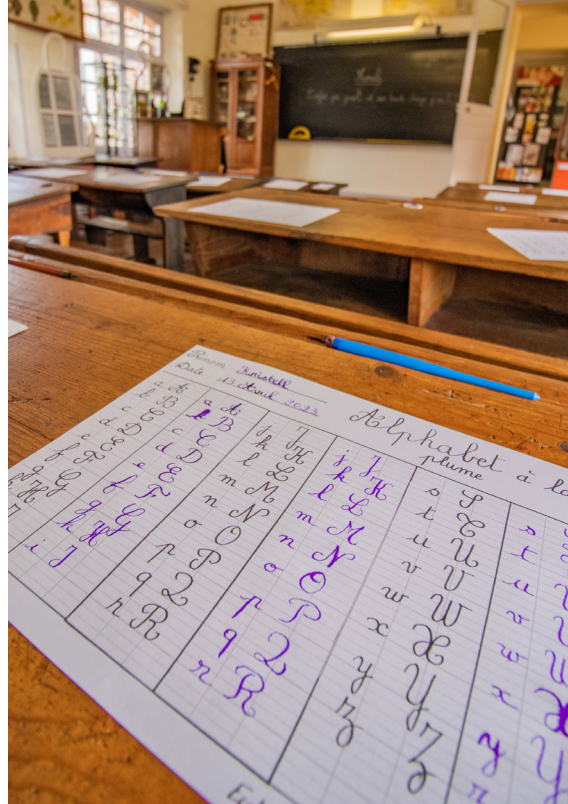 Prénom Kristell
Date 13 Avril 2023
Alphabet à la
plume
a A
b B
c C
d D
e E
f F
g G
h H
a A
b B
c C
d D
e E
f F
g G
h H
i I
j J
k K
l L
m M
n N
o O
p P
q Q
r R
j J
k K
l L
m M
n N
o O
p P
q Q
r R
s S
t T
u U
v V
w W
x X
y Y
z Z
s
t
u U
v V
w W
x X
y Y
z